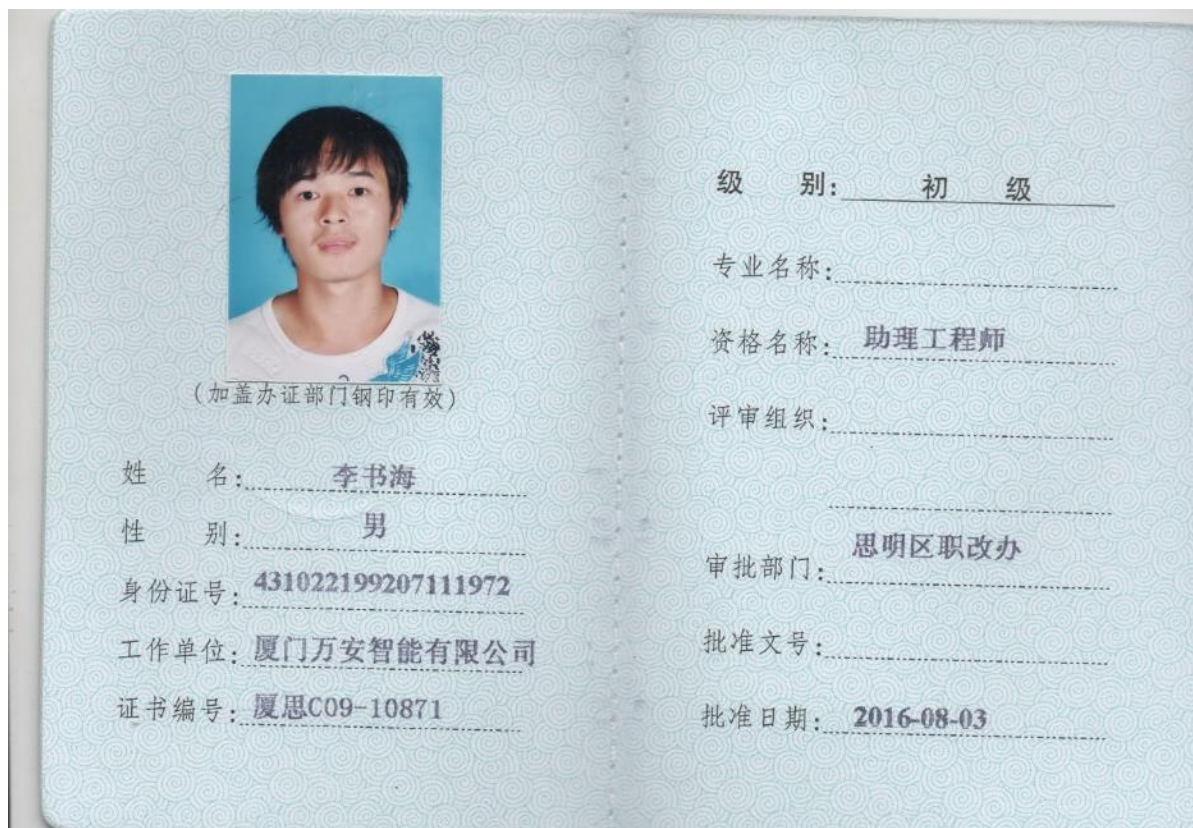 (加盖办证部门钢印有效)
姓 名: 李书海
性 别: 男
身份证号: 431022199207111972
工作单位: 厦门万安智能有限公司
证书编号: 厦思C09-10871
级 别: 初 级
专业名称:
资格名称: 助理工程师
评审组织:
审批部门: 思明区职改办
批准文号:
批准日期: 2016-08-03